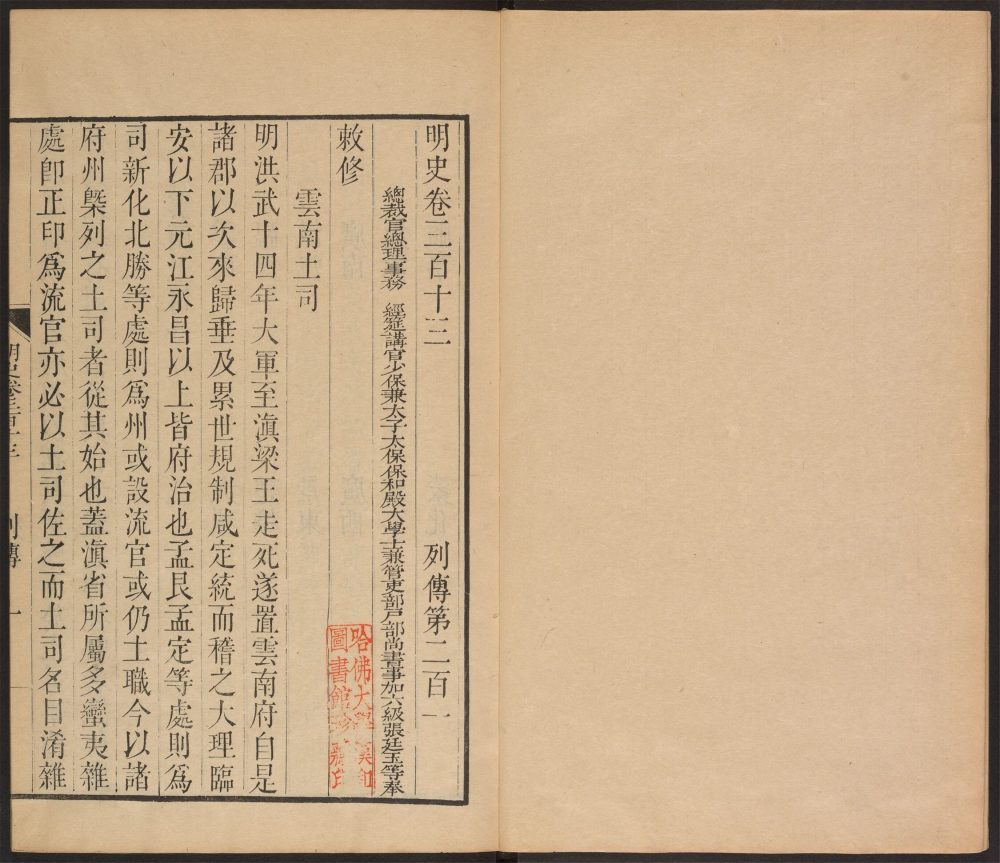 明史卷三百十三 列傳第二百一
總裁官總理事務 經筵講官少保兼太子太保保和殿大學士兼管吏部戶部尚書事加六級張廷玉等奉
敕修
雲南土司
明洪武十四年大軍至滇梁王走死遂置雲南府自是
諸郡以次來歸垂及累世規制咸定統而稽之大理臨
安以下元江永昌以上皆府治也孟艮孟定等處則爲
司新化北勝等處則爲州或設流官或仍土職今以諸
府州槩列之土司者從其始也蓋滇省所屬多蠻夷雜
處卽正印爲流官亦必以土司佐之而土司名目淆雜
明史卷三百十三 列傳 一
哈佛大學漢和
圖書館